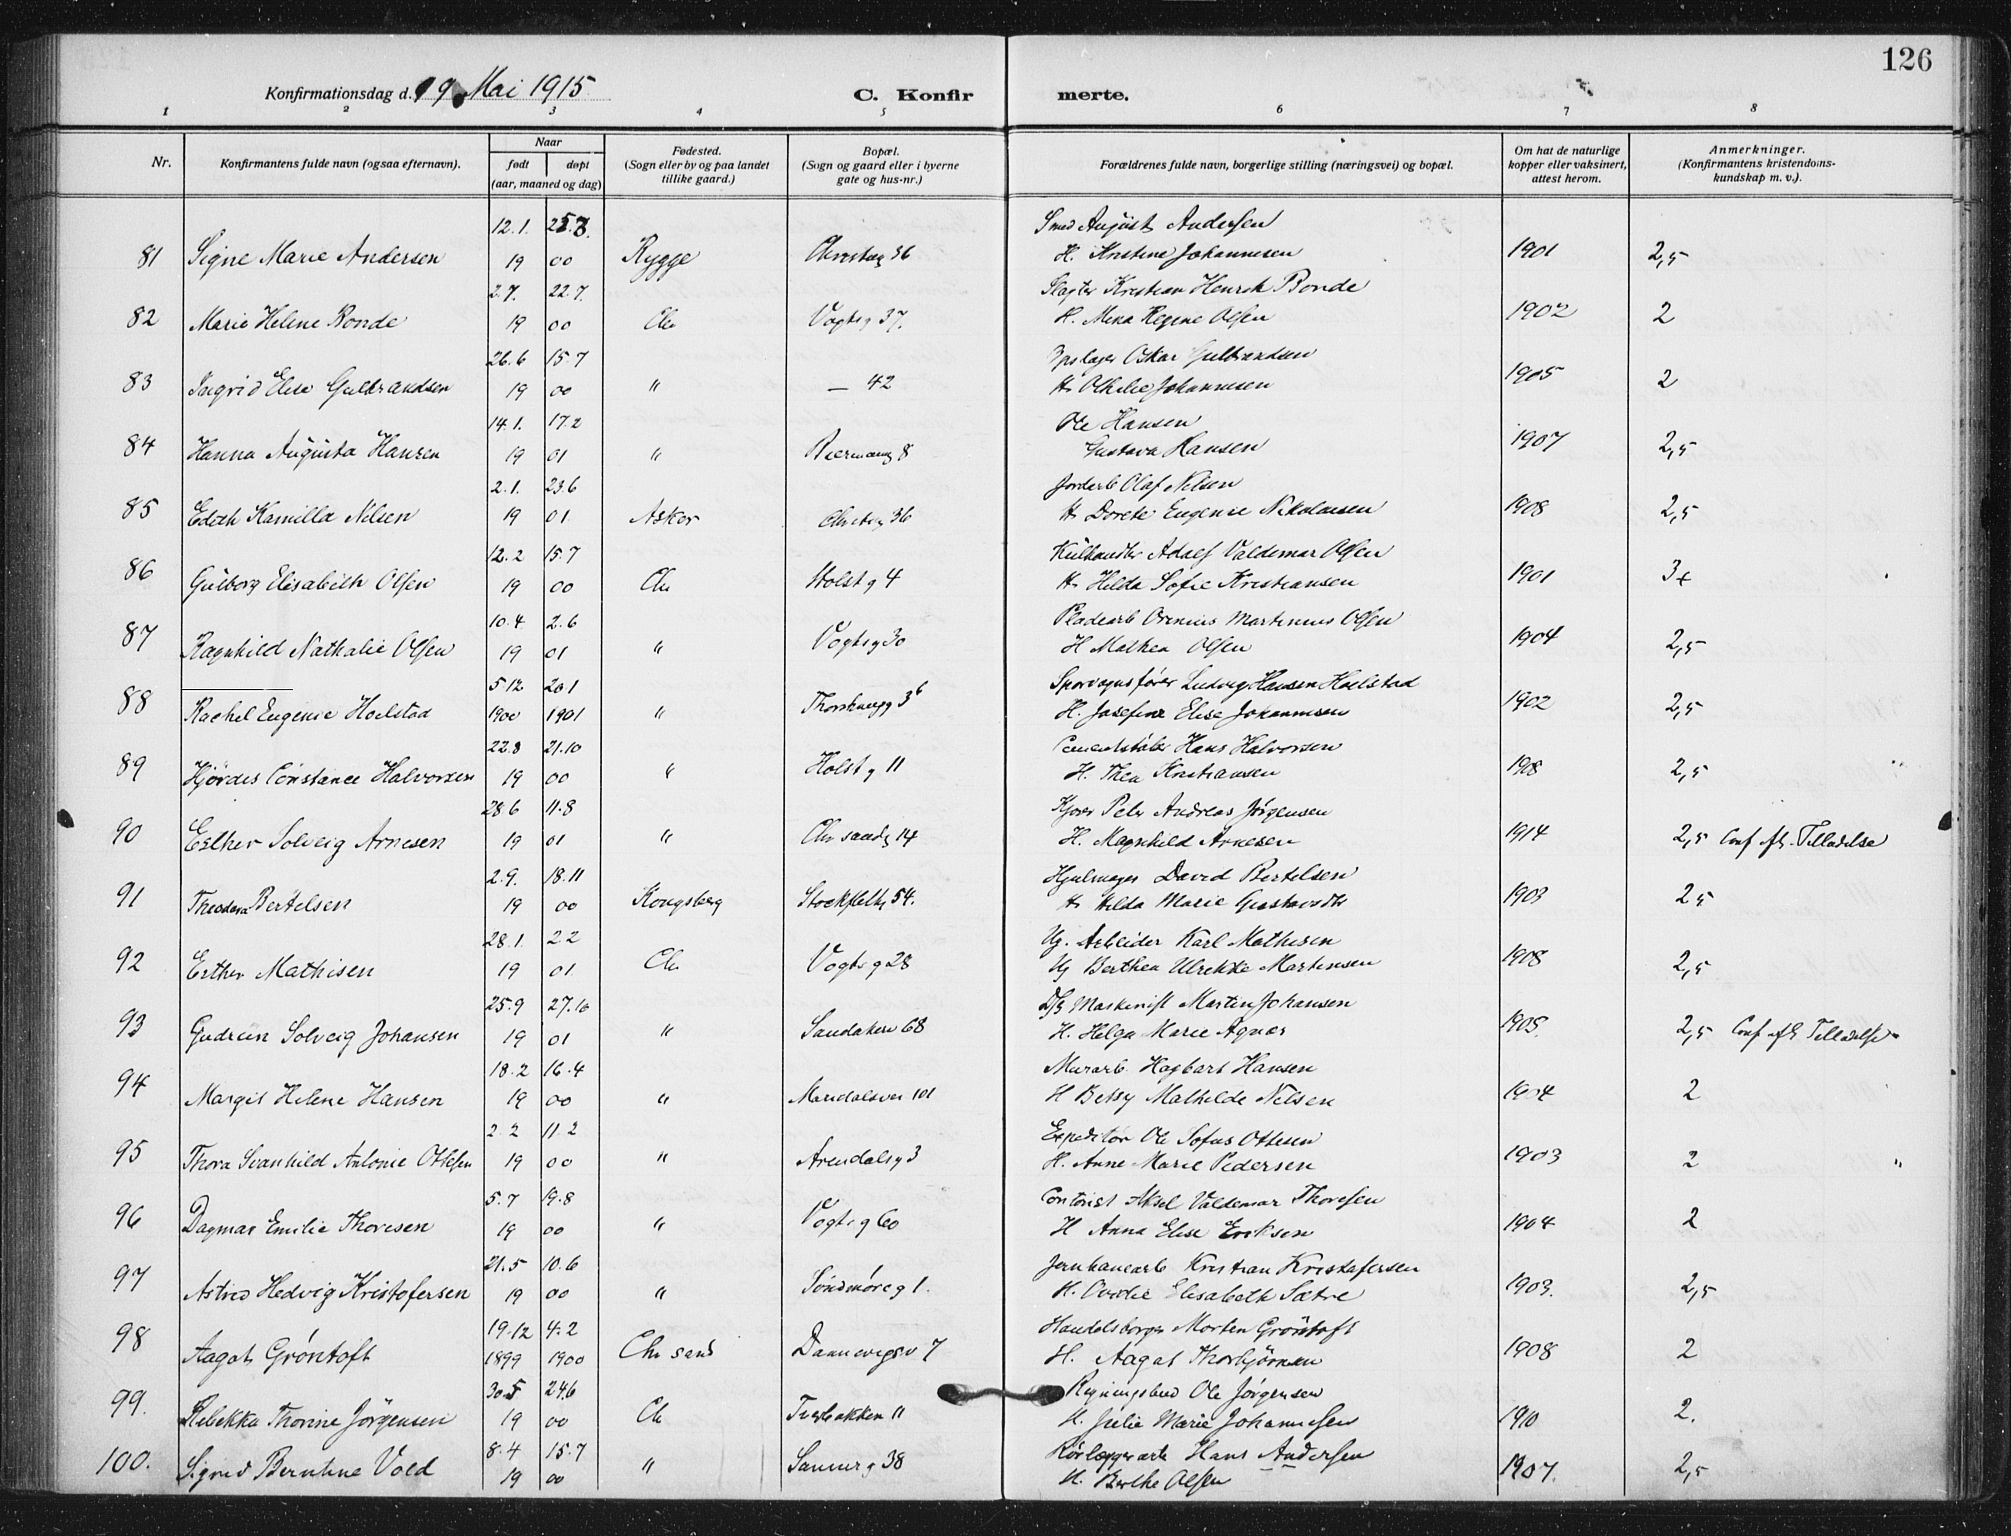 126
Konfirmationsdag d. 19 Mai 1915
C. Konfir merte.
1 2 3 4 5 6 7 8
Nr. Konfirmantens fulde navn (ogsaa efternavn). Naar født døpt (aar, maaned og dag) Fødested. (Sogn eller by og paa landet tillike gaard.) Bopæl. (Sogn og gaard eller i byerne gate og hus-nr.) Forældrenes fulde navn, borgerlige stilling (næringsvei) og bopæl. Om hat de naturlige kopper eller vaksinert, attest herom. Anmerkninger. (Konfirmantens kristendoms-kundskap m. v.).
12.1. Smed August Andersen
81 Signe Marie Andersen 19 00 Rygge 36 H. Kristine Johannesen 1901 2,5
2.7. 22.7. Slagter Kristian Henrik Bonde
82 Marie Helene Bonde 19 00 Chr Vogtsg 37. H. Mina Regine Olsen 1902 2
26.6 15.7 Oskar Gulbrandsen
83 Ingrid Elise Gulbrandsen 19 00 " — 42 H. Othilie Johannesen 1905 2
14.1. 17.2 Ole Hansen
84 Hanna Augusta Hansen 19 01 " 8 Gustava Hansen 1907 2,5
2.1. 23.6 Jordarb Olaf Nilsen
85 Edith Kamilla Nilsen 19 01 Asker 36 H. Dorete Eugenie Nikolaisen 1908 2,5
12.2 15.7 Kulhandler Adolf Valdemar Olsen
86 Gulborg Elisabeth Olsen 19 00 Chr Holst g 4 H. Hilda Sofie Kristiansen 1901 3+
10.4 2.6 Pladearb Martinius Olsen
87 Ragnhild Nathalie Olsen 19 01 " Vogtsg 30 H Mathea Olsen 1904 2,5
5 12 20 1 Sporvognsfører Ludvig Hansen Hoelstad
88 Rachel Eugenie Hoelstad 1900 1901 " 36 H. Josefine Elise Johannesen 1902 2,5
22.8 21.10 Cementstøber Hans Halvorsen
89 Hjørdis Constance Halvorsen 19 00 " Holst g 11 H. Thea Kristiansen 1908 2,5
28 6 11.8 Kjører Peter Andreas Jørgensen
90 Esther Solveig Arnesen 19 01 " Chr sandg 14 H. Magnhild Arnesen 1914 2,5 Conf eft. Tilladelse
2.9. 18.11 Hjulmager David Bertelsen
91 Theodora Bertelsen 19 00 Kongsberg Stockflethg 54. H. Hilda Marie 1903 2 5
28.1. 2.2 Ug. Arbeider Karl Mathisen
92 Esther Mathisen 19 01 Chr Vogts g 28 Ug Berthea Ulrikke Martinsen 1908 2,5
25.9 27.10 Maskinist Martin Johansen
93 Gudrun Solveig Johansen 19 01 " Sandakerv 68 H. Helga Marie Agnæs 1905. 2,5 Conf eft Tilladelse
18.2 16.4 Murarb. Hagbart Hansen
94 Margit Helene Hansen 19 00 " Maridalsvei 101 H Betsy Mathilde Nilsen 1904 2
2.2 11.2 Expeditør Ole Sofus Ottesen
95 Thora Svanhild Antonie Ottesen 19 00 " Arendalsg 3 H. Anne Marie Pedersen 1903 2 "
5.7 19.8 Contorist Aksel Valdemar Thoresen
96 Dagmar Emilie Thoresen 19 00 " Vogts g 60 H Anna Elise Eriksen 1904 2
21.5 10.6 Jernbanearb Kristian Kristofersen
97 Astrid Hedvig Kristofersen 19 00 " Søndmøre g 1. H. Elisabeth Sætre 1903. 2,5
19.12 4.2 Handelsborger Morten Grøntoft
98 Aagot Grøntoft 1899 1900 Chr sand Dannevigsv 7 H. Aagot Thorbjørnsen 1908 2
30.5 24.6 Regningsbud Ole Jørgensen
99. Rebekka Thorine Jørgensen 19 00 Chr Tuebakken 11 H. Julie Marie Johannesen 1910 2.
8.4 15.7 Rørlæggerarb Hans Andersen
100. Sigrid Berntine Vold 19 00 " Sanner g 38 H. Berthe Olsen 1907. 2,5